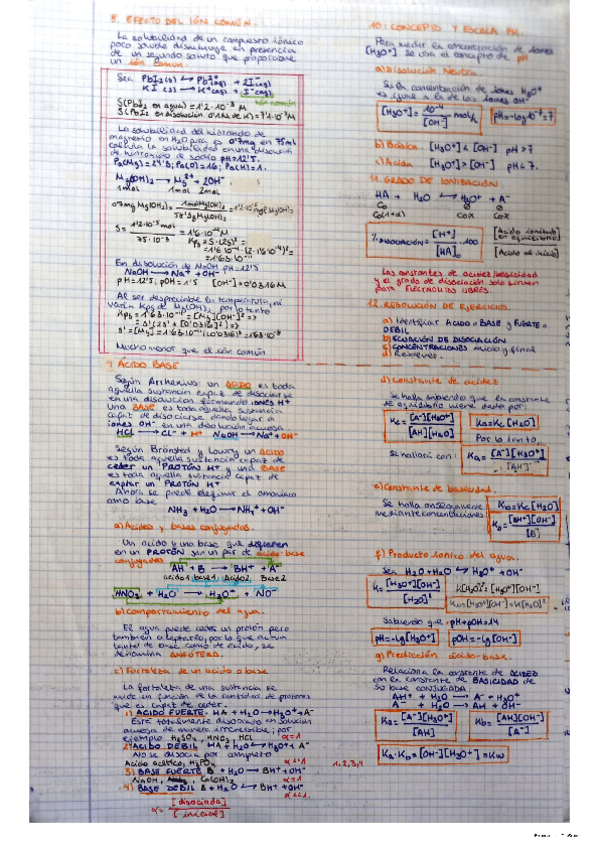 8. EFECTO DEL IÓN COMÚN.
La solubilidad de un compuesto iónico
poco soluble disminuye en presencia
de un segundo soluto que proporcione
un ión común.
Sea PbI2(s) ⇄ Pb2+(aq) + 2I-(aq)
KI(s) → K+(aq) + I-(aq)
ión común
S(PbI2 en agua) = 1'2·10-3 M
S(PbI2 en disolución 0'1M de KI) = 7'1·10-7 M
La solubilidad del hidróxido de
magnesio en H2O pura es 0'7mg en 75ml
calcula la solubilidad en una disolución
de hidróxido de sodio pH=12'5.
Pa(Mg)=24'3; Pa(O)=16; Pa(H)=1.
Mg(OH)2 → Mg2+ + 2OH-
1mol 1mol 2mol
En disolución de NaOH pH=12'5
NaOH → Na+ + OH-
pH=12'5; pOH=1'5 [OH-]=0'0316M
Al ser despreciable la temperatura, ni
varía Kps de Mg(OH)2, por lo tanto
Mucho menor que el ión común
9. ÁCIDO BASE
Según Arrhenius un ÁCIDO es toda
aquella sustancia capaz de disociarse
en una disolución formando iones H+
Una BASE es toda aquella sustancia
capaz de disociarse dando lugar a
iones OH- en una disolución acuosa
HCl → Cl- + H+ NaOH → Na+ + OH-
Según Brönsted y Lowry un ÁCIDO
es toda aquella sustancia capaz de
ceder un PROTÓN H+ y una BASE
es toda aquella sustancia capaz de
captar un PROTÓN H+
Ahora se puede definir el amoniaco
como base
NH3 + H2O → NH4+ + OH-
a) Ácidos y bases conjugados.
Un ácido y una base que difieren
en un PROTÓN son un par de ácido-base
conjugados
AH + B → BH+ + A-
ácido1 base1 Ácido2 Base2
HNO2 + H2O → H3O+ + NO-
b) Comportamiento del agua.
El agua puede ceder un protón pero
también aceptarlo, por lo que actúa
tanto de base como de ácido, se
denomina ANFÓTERO.
c) Fortaleza de un ácido o base
La fortaleza de una sustancia se
mide en función de la cantidad de protones
que es capaz de ceder.
1) ÁCIDO FUERTE HA + H2O → H3O+ + A-
Está totalmente disociado en solución
acuosa de manera irreversible; por
ejemplo H2SO4, HNO3, HCl α=1
2) ÁCIDO DÉBIL HA + H2O ⇄ H3O+ + A-
No se disocia por completo
Ácido acético, H3PO4 α<1
3) BASE FUERTE B + H2O → BH+ + OH-
NaOH, Ca(OH)2 α=1
4) BASE DÉBIL B + H2O ⇄ BH+ + OH-
α<1.
α = [disociada] / [inicial]
10. CONCEPTO Y ESCALA PH.
Para medir la concentración de iones
[H3O+] se usa el concepto de pH
a) Disolución Neutra.
Si la concentración de iones H3O+
es igual a la de los iones OH-
[H3O+] = 10-14 / [OH-] mol/L
pH = -log 10-7 = 7
b) Básica [H3O+] < [OH-] pH > 7
c) Ácida [H3O+] > [OH-] pH < 7.
11. GRADO DE IONIZACIÓN
HA + H2O ⇄ H3O+ + A-
C0 Ø Ø
C0(1-α) C0α C0α
% DISOCIACIÓN = [H+] / [HA]0 · 100
[Ácido ionizado en equilibrio]
[Ácido al inicio]
Las constantes de acidez/basicidad
y el grado de disociación solo sirven
para ELECTROLITOS DÉBILES.
12. RESOLUCIÓN DE EJERCICIOS.
a) Identificar ÁCIDO o BASE y FUERTE o
DÉBIL
b) ECUACIÓN DE DISOCIACIÓN
c) CONCENTRACIONES inicio y final
d) Resolver.
d) Constante de acidez
se halla sabiendo que la constante
de equilibrio viene dada por:
Kc = [A-][H3O+] / [AH][H2O]
Ka = Kc [H2O]
Por lo tanto,
Se hallará con: Ka = [A-][H3O+] / [AH]
e) Constante de basicidad.
Se halla análogamente
mediante concentraciones
Kb = Kc [H2O]
Kb = [BH+][OH-] / [B]
f) Producto iónico del agua.
Sea H2O + H2O ⇄ H3O+ + OH-
K = [H3O+][OH-] / [H2O]2
K[H2O]2 = [H3O+][OH-]
Kw = [H3O+][OH-] = K[H2O]2
Sabiendo que pH + pOH = 14
pH = -lg[H3O+] pOH = -lg[OH-]
g) Predicción ácido-base.
Relaciona la constante de ACIDEZ
con la constante de BASICIDAD de
su base conjugada
AH + H2O ⇄ A- + H3O+
A- + H2O ⇄ AH + OH-
Ka = [A-][H3O+] / [AH] Kb = [AH][OH-] / [A-]
Ka·Kb = [OH-][H3O+] = Kw
1, 2, 3, 4